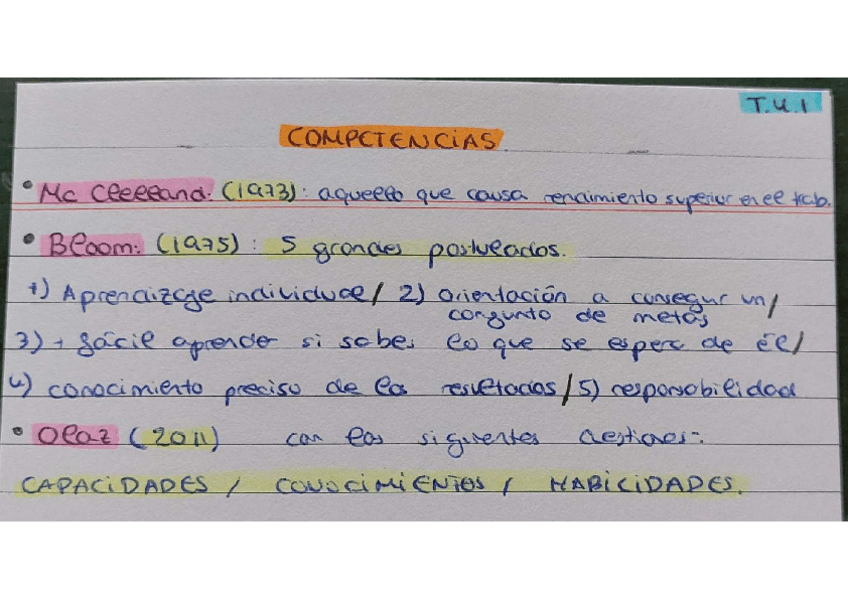 T.4.1
COMPETENCIAS
• Mc Clelland: (1973): aquello que causa rendimiento superior en el trab.
• Bloom: (1975): 5 grandes postulados.
1) Aprendizaje individual / 2) orientación a conseguir un /
conjunto de metas
3) + fácil aprender si sabes lo que se espera de él /
4) conocimiento preciso de los resultados / 5) responsabilidad
• Olaz (2011) con las siguientes cuestiones:
CAPACIDADES / CONOCIMIENTOS / HABILIDADES.